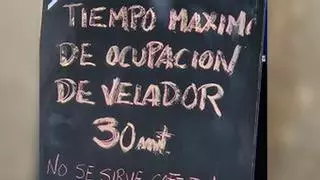 TIEMPO MAXIMO
DE OCUPACION
DE VELADOR
30 mnt.
NO SE SIRVE